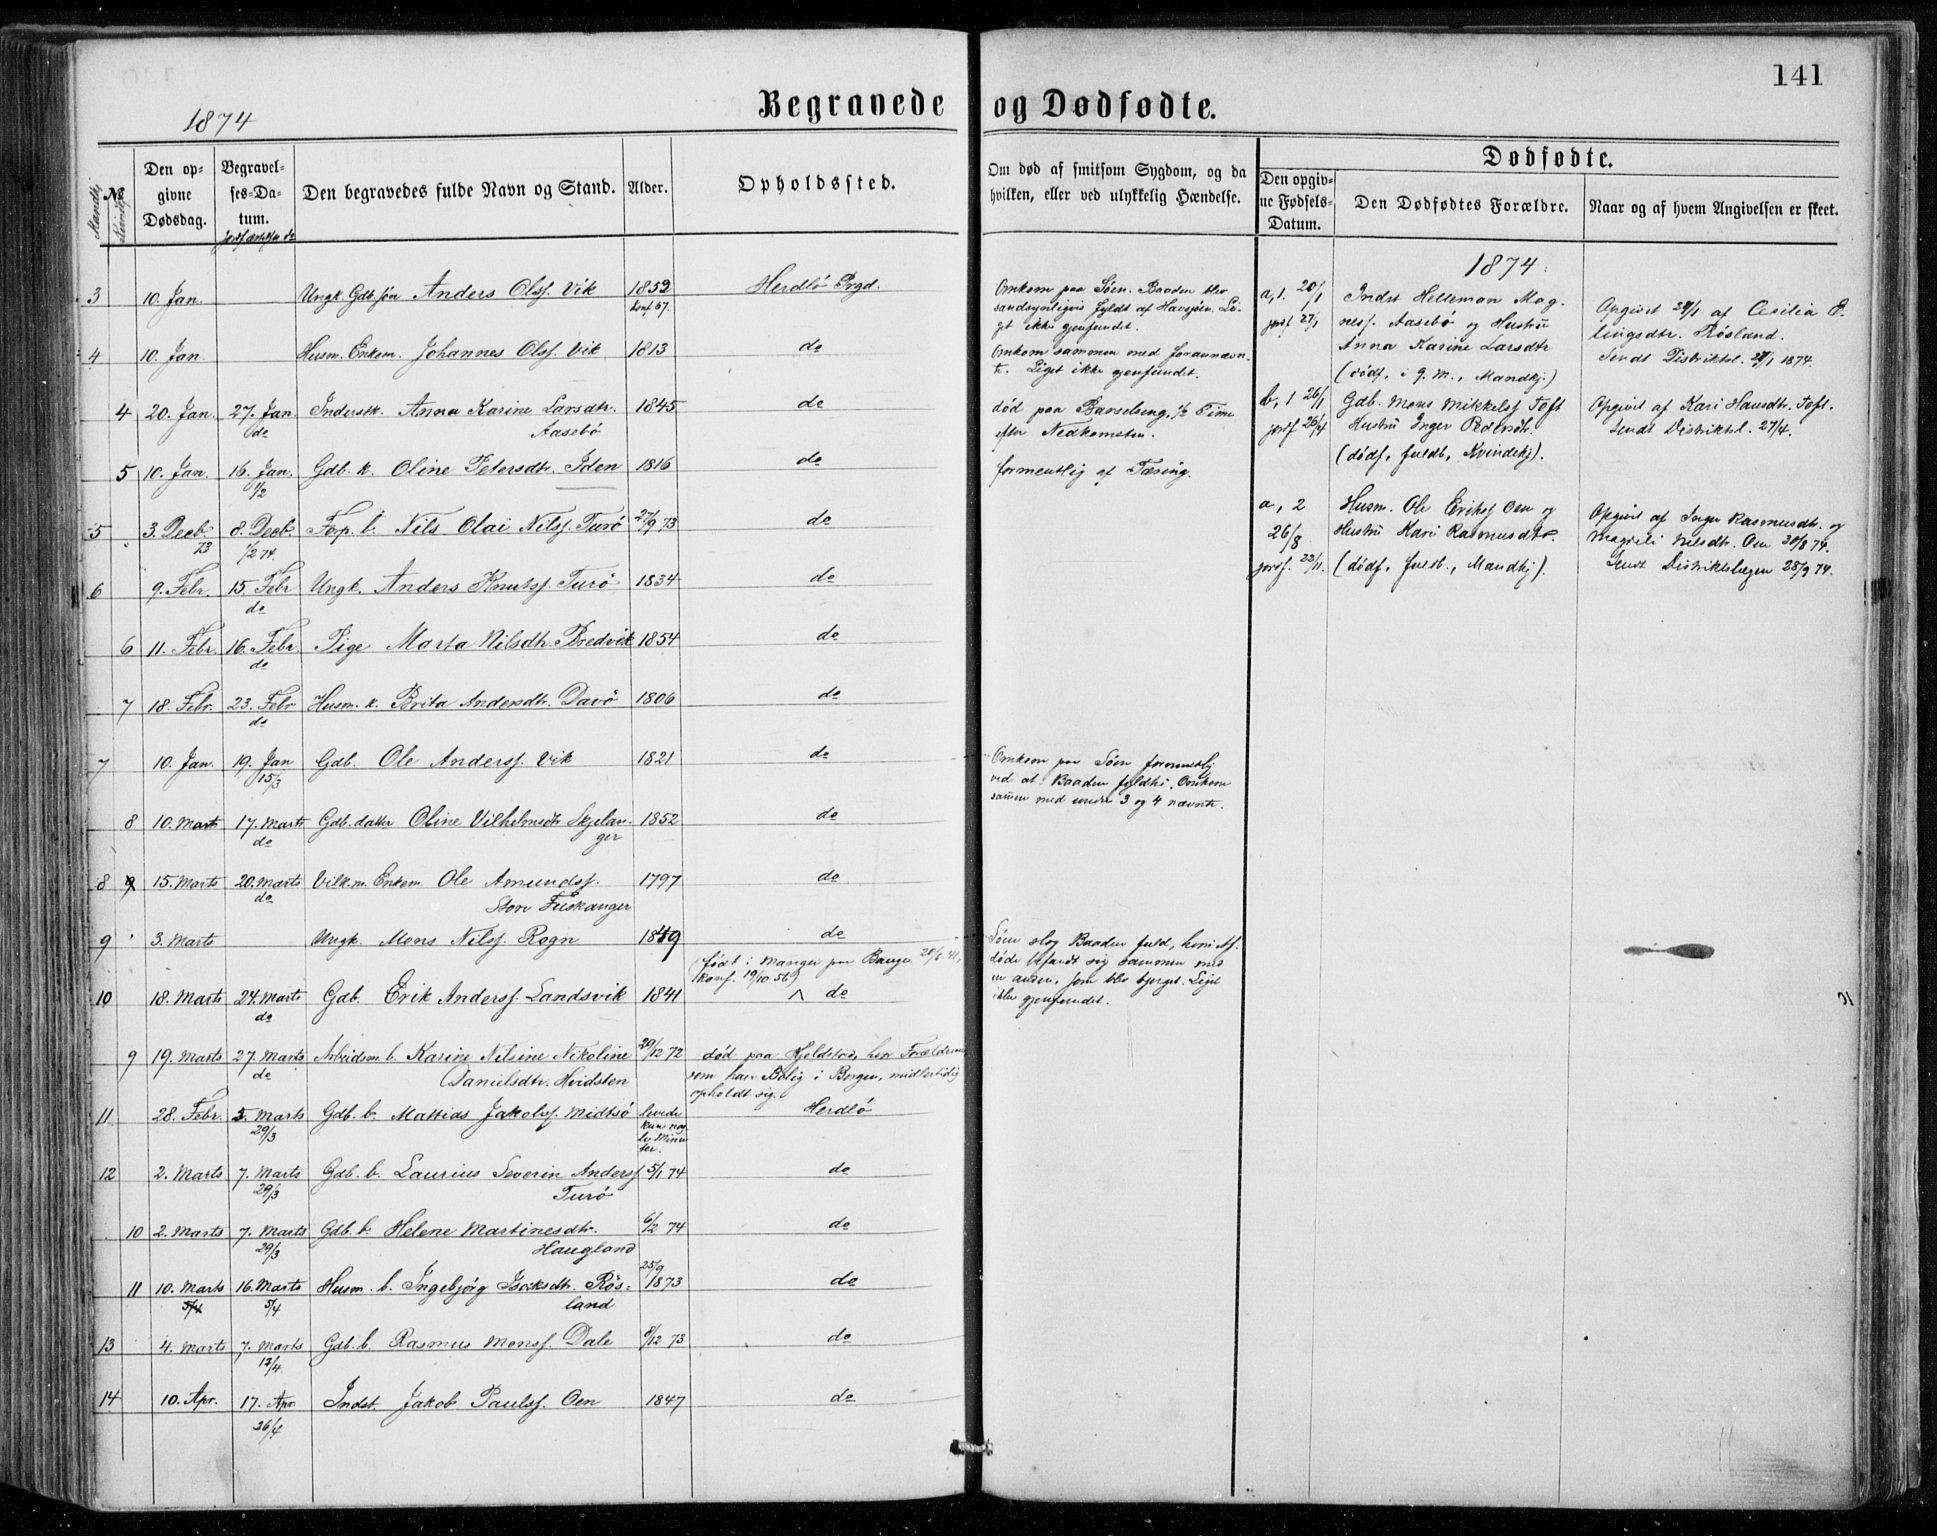 141
Begravede og Dødfødte.
1874
Mandkj. No. Kvindekj.
Den opgivne Dødsdag.
Begravelses-Datum.
Jordfæstelse do
Den begravedes fulde Navn og Stand.
Alder.
Opholdssted.
Om død af smitsom Sygdom, og da
hvilken, eller ved ulykkelig Hændelse.
Dødfødte.
Den opgivne Fødsels-Datum.
Den Dødfødtes Forældre.
Naar og af hvem Angivelsen er skeet.
3 10. Jan. Ungk. Gdb. søn Anders Olsf. Vik 1852 Herdlø Prgd.
konf 67.
Omkom paa Søen. Baaden blev
sandsynligvis fyldt af Havsjøen. Li-
get ikke gjenfundet.
4 10. Jan. Husm. Enkem. Johannes Olsf. Vik 1813 do
Omkom sammen med forannævn-
te. Liget ikke gjenfundet.
4 20. Jan. 27. Jan. Inderstk. Anna Karine Larsdtr. 1845 do
do Aasebø
død paa Barselseng, ½ Time
efter Nedkomsten.
5 10. Jan. 16. Jan. Gdb. k. Oline Petersdtr. Iden 1816 do
1/2
formentlig af Tæring.
5 3. Decb. 8. Decb. Førp. b. Nils Olai Nilsf. Turø 27/9 73 do
73 1/2 74.
6 9. Febr. 15. Febr Ungk. Anders Knutsf. Turø 1834 do
do
6 11. Febr. 16. Febr. Pige Marta Nilsdtr. Bredvik 1854 do
do
7 18. Febr. 23. Febr Husm. k. Brita Andersdtr. Davø 1806 do
do
7 10. Jan. 19. Jan Gdb. Ole Andersf. Vik 1821 do
15/3
Omkom paa Søen formentlig
ved at Baaden fyldtes. Omkom
sammen med under 3 og 4 nævnte.
8 10. Marts 17. Marts Gdb. datter Oline Vilhelmsdtr Skjelan- 1852 do
do ger
8 9 15. Marts 20. Marts Vilkm. Enkem Ole Amundsf. 1797 do
do Store Fuskanger
9 3. Marts Ungk. Mons Nilsf. Rogn 1849 do
Søen slog Baaden fuld, hvori Af-
døde befandt sig sammen med
en anden, som blev bjerget. Liget
ikke gjenfundet.
(født i Manger paa Bauge 28/8 41,
konf. 19/10 56)
10 18. Marts 24. Marts Gdb. Erik Andersf. Landsvik 1841 do
do
9 19. Marts 27. Marts Arbeidsm. b. Karine Nilsine Nikoline 29/12 72 død paa Hjeldstø, hvor Forældrene
do Danielsdtr. Hvidsten som har Bolig i Bergen, midlertidig
opholdt sig.
11 28. Febr. 5. Marts Gdb. b. Mattias Jakobsf. Midtsø levede Herdlø
29/3 kun nog-
le Minu-
ter.
12 2. Marts 7. Marts Gdb. b. Laurius Severin Andersf 5/1 74 do
29/3 Turø
10 2. Marts 7. Marts Gdb. b. Helene Martinesdtr. 6/2 74 do
29/3 Haugland
11 10. Marts 16. Marts Husm. b. Ingebjørg Isaksdtr. Røs- 25/9 1873 do
5/4 5/4 land
13 4. Marts 7. Marts Gdb. b. Rasmus Monsf. Dale 8/12 73 do
12/4.
14 10. Apr. 17. Apr. Indst. Jakob Paulsf. Oen 1847 do
26/4
1874.
a, 1. 20/1
jordf 27/1
Indst Helleman Mag-
nesf. Aasebø og Hustru
Anna Karine Larsdtr
(dødf. i 9. M., Mandkj.)
Opgivet 24/1 af Cecilia E-
lingsdtr. Røsland.
Sendt Distriktsl. 28/1 1874.
b, 1 26/1
jordf 26/4
Gdb. Mons Mikkelsf Toft
Hustru Inger Pedersdtr.
(dødf. fuldb, Kvindekj).
Opgivet af Kari Hansdtr. Toft.
Sendt Distriktsl. 27/4.
a, 2
26/8
jordf. 22/11.
Husm. Ole Eriksf Oen og
Hustru Kari Rasmusdtr.
(dødf. fuldb., Mandkj).
Opgivet af Inger Rasmusdtr. og
Magreli Nilsdtr. Oen 30/8 74.
Sendt Distriktslægen 28/9 74.